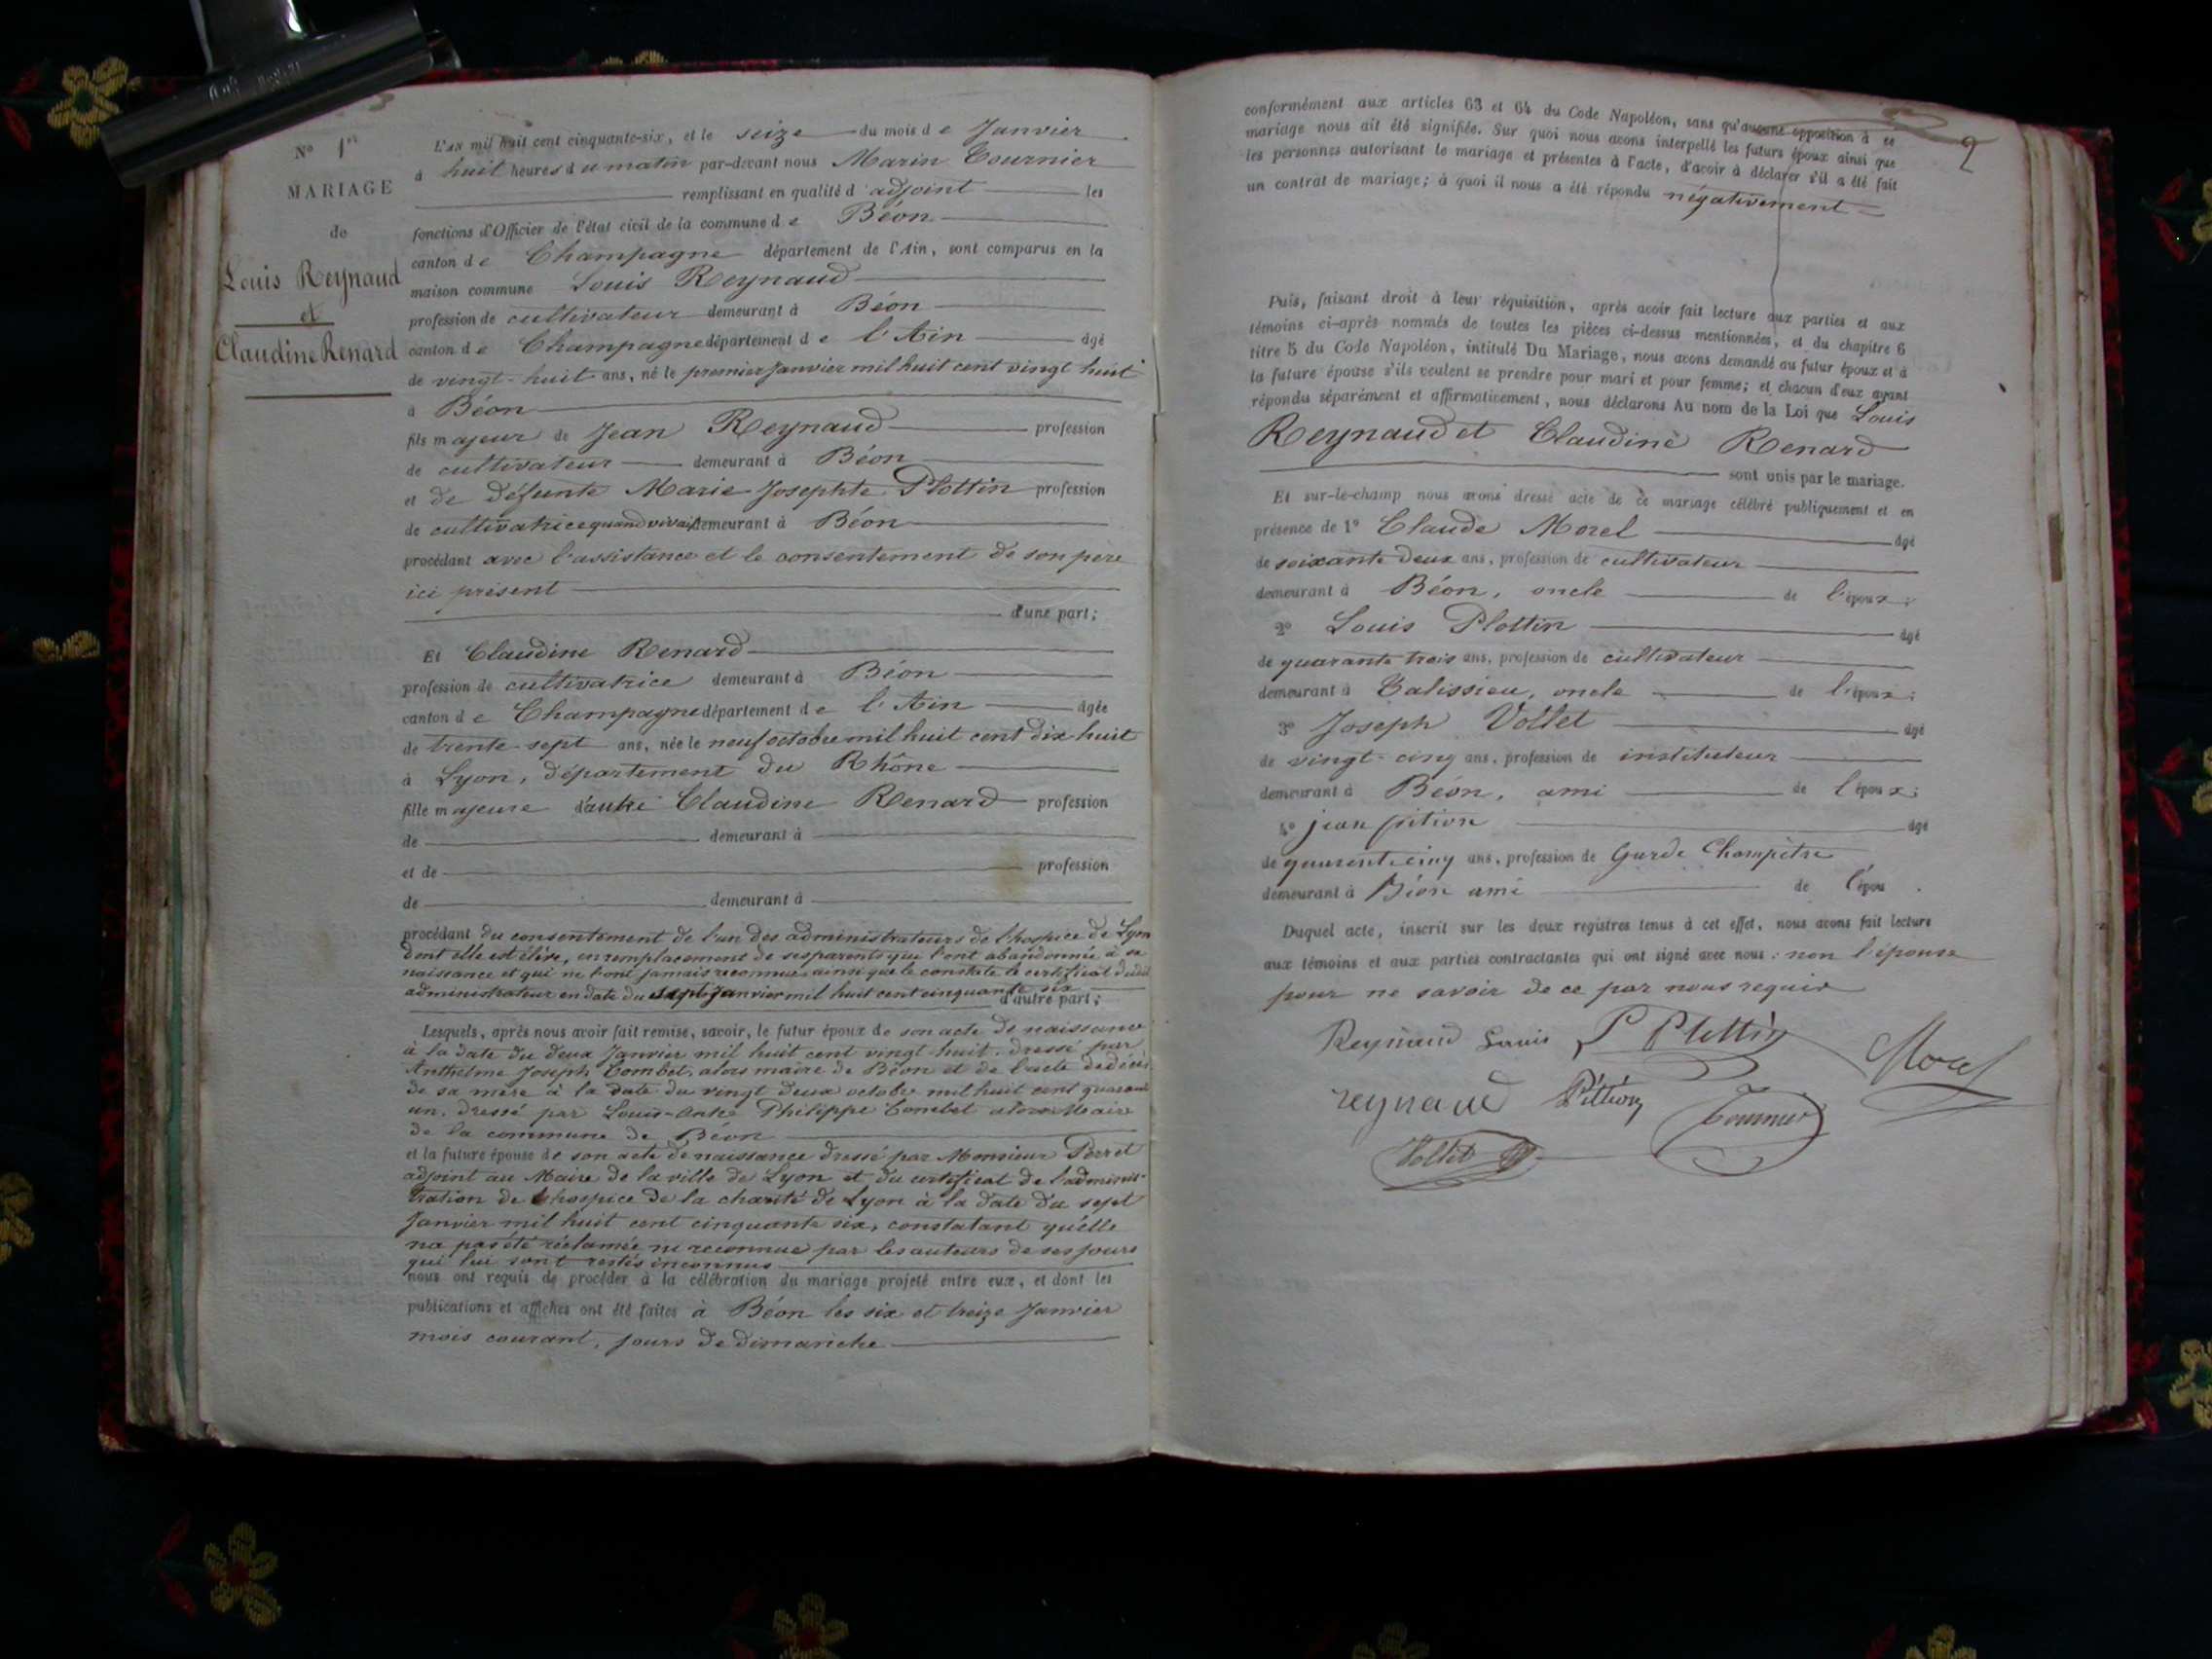 N° 1er
MARIAGE
de
Louis Reynaud
et
Claudine Renard
L'AN mil huit cent cinquante-six, et le seize du mois de Janvier
à huit heures du matin par-devant nous Marin Tournier
remplissant en qualité d'adjoint les
fonctions d'Officier de l'état civil de la commune de Béon
canton de Champagne département de l'Ain, sont comparus en la
maison commune Louis Reynaud
profession de cultivateur demeurant à Béon
canton de Champagne département de l'Ain âgé
de vingt-huit ans, né le premier Janvier mil huit cent vingt huit
à Béon
fils majeur de Jean Reynaud profession
de cultivateur demeurant à Béon
et de défunte Marie Josephte Plottin profession
de cultivatrice quand vivait demeurant à Béon
procédant avec l'assistance et le consentement de son père
ici présent
d'une part;
Et Claudine Renard
profession de cultivatrice demeurant à Béon
canton de Champagne département de l'Ain âgée
de trente-sept ans, née le neuf octobre mil huit cent dix-huit
à Lyon, département du Rhône
fille majeure d'autre Claudine Renard profession
de demeurant à
et de profession
de demeurant à
procédant du consentement de l'un des administrateurs de l'hospice de Lyon
dont elle est élève, en remplacement de ses parents qui l'ont abandonnée à sa
naissance et qui ne l'ont jamais reconnue ainsi que le constate le certificat dudit
administrateur en date du sept Janvier mil huit cent cinquante six
d'autre part;
Lesquels, après nous avoir fait remise, savoir, le futur époux de son acte de naissance
à la date du deux Janvier mil huit cent vingt huit. dressé par
Anthelme Joseph Combet, alors maire de Béon et de l'acte de décès
de sa mère à la date du vingt deux octobre mil huit cent quarante
un. dressé par Louis- Philippe Combet alors Maire
de la commune de Béon
et la future épouse de son acte de naissance dressé par Monsieur
adjoint au Maire de la ville de Lyon et du certificat de l'adminis-
tration de l'hospice de la charité de Lyon à la date du sept
Janvier mil huit cent cinquante six, constatant qu'elle
na pas été réclamée ni reconnue par les auteurs de ses jours
qui lui sont restés inconnus
nous ont requis de procéder à la célébration du mariage projeté entre eux, et dont les
publications et affiches ont été faites à Béon les six et treize Janvier
mois courant, jours de dimanche
2
conformément aux articles 63 et 64 du Code Napoléon, sans qu'aucune opposition à ce
mariage nous ait été signifiée. Sur quoi nous avons interpellé les futurs époux ainsi que
les personnes autorisant le mariage et présentes à l'acte, d'avoir à déclarer s'il a été fait
un contrat de mariage; à quoi il nous a été répondu négativement
Puis, faisant droit à leur réquisition, après avoir fait lecture aux parties et aux
témoins ci-après nommés de toutes les pièces ci-dessus mentionnées, et du chapitre 6
titre 5 du Code Napoléon, intitulé Du Mariage, nous avons demandé au futur époux et à
la future épouse s'ils veulent se prendre pour mari et pour femme; et chacun d'eux ayant
répondu séparément et affirmativement, nous déclarons Au nom de la Loi que Louis
Reynaud et Claudine Renard
sont unis par le mariage.
Et sur-le-champ nous avons dressé acte de ce mariage célébré publiquement et en
présence de 1° Claude Morel âgé
de soixante deux ans, profession de cultivateur
demeurant à Béon, oncle de l'époux;
2° Louis Plottin âgé
de quarante trois ans, profession de cultivateur
demeurant à Talissieu, oncle de l'époux;
3° Joseph Vollet âgé
de vingt-cinq ans, profession de instituteur
demeurant à Béon, ami de l'époux;
4° jean pition âgé
de quarente cinq ans, profession de Garde Champêtre
demeurant à Béon ami de l'épou .
Duquel acte, inscrit sur les deux registres tenus à cet effet, nous avons fait lecture
aux témoins et aux parties contractantes qui ont signé avec nous: non l'épouse
pour ne savoir de ce par nous requis
Reynaud Louis Plottin Morel
reynaud Pittion Tournier
Vollet